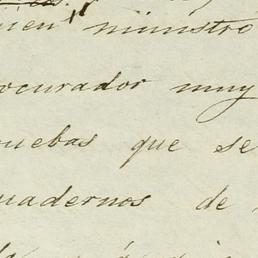 uien ministro
ocurador muy
uebas que se
uadernos de